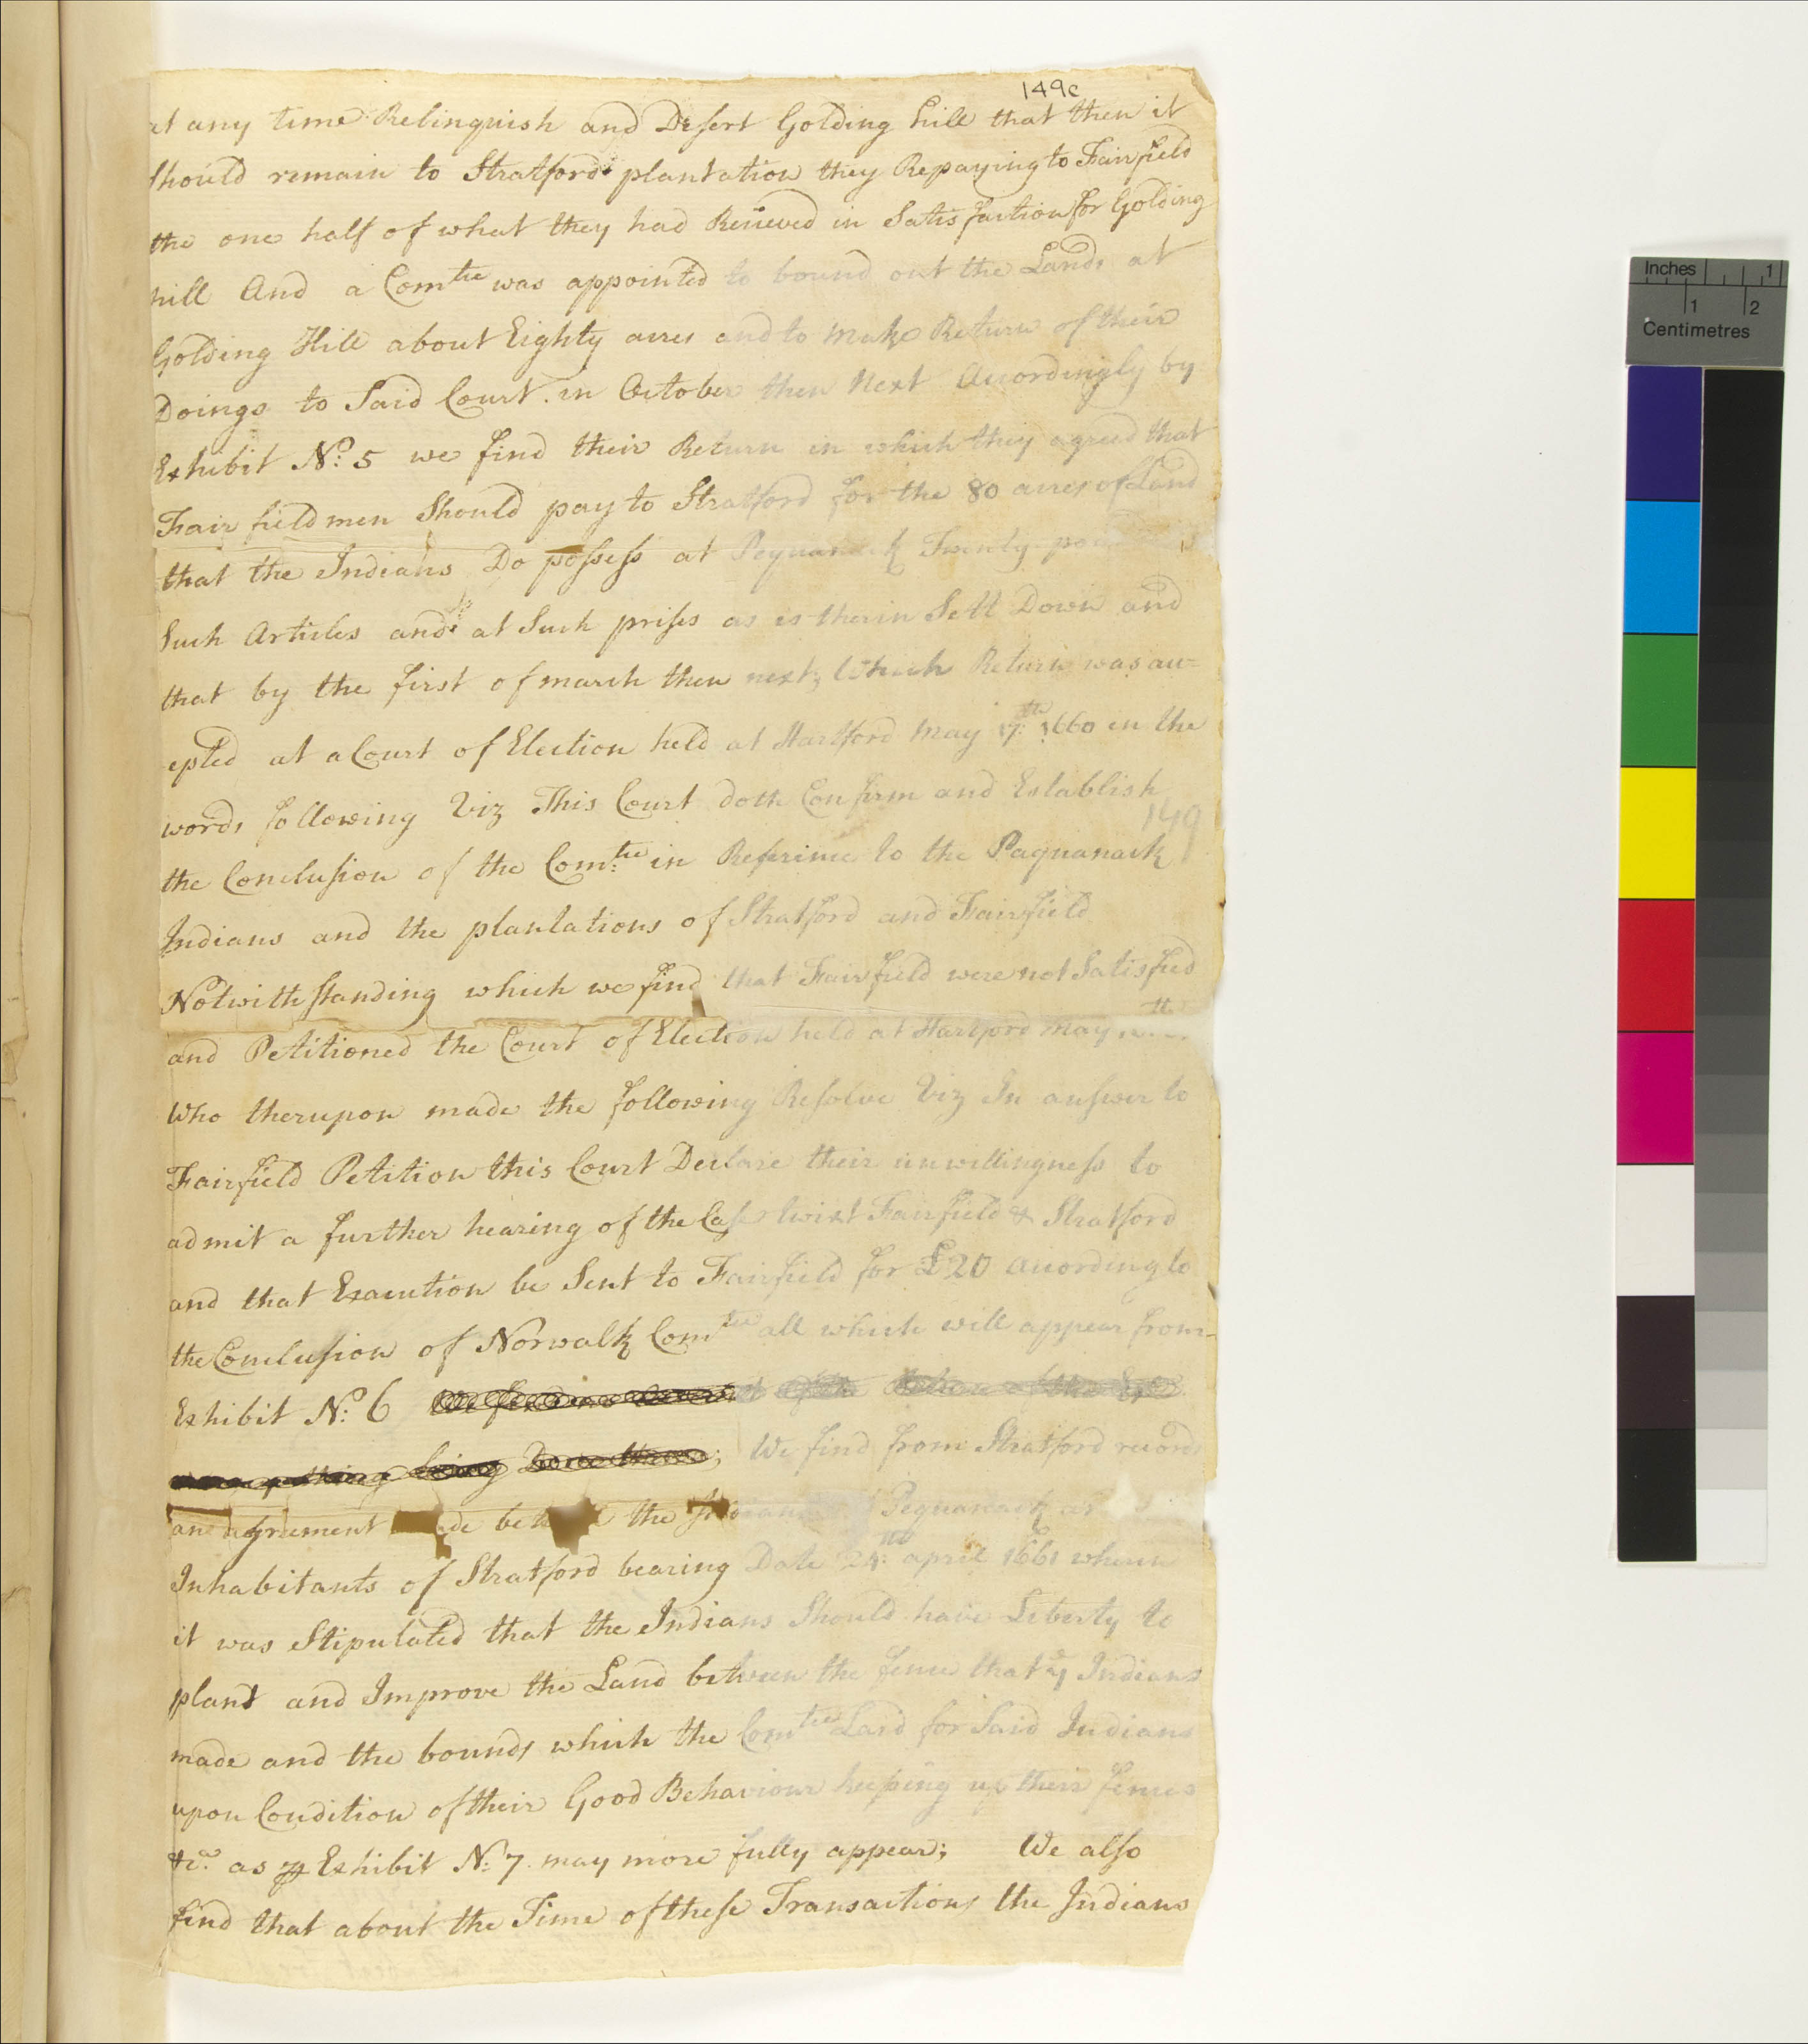 149c
at any time Relinquish and Desert Golding hill that then it
should remain to Stratford plantation they Repaying to Fairfield
the one half of what they had Recieved in Satisfaction for Golding
hill And a Comtee was appointed to bound out the Lands at
Golding Hill about Eighty acres and to make Return of their
Doings to Said Court in October then Next Accordingly by
Exhibit No: 5 we find their Return in which they agreed that
Fairfield men Should pay to Stratford for the 80 acres of Land
that the Indians Do possess at Pequanack Twenty
Such Articles and at Such prises as is therin Sett Down and
that by the first of march then next; Which Return was acc=
epted at a Court of Election held at Hartford May 17th 1660 in the
words following Viz This Court doth Confirm and Establish
149
the Conclusion of the Com:tee in Referince to the Paquanack
Indians and the plantations of Stratford and Fairfield
Notwithstanding which we find that Fairfield were not Satisfied
and Petitioned the Court of Election held at Hartford May th
Who therupon made the following Resolve Viz In answer to
Fairfield Petition this Court Declare their unwillingness to
admit a further hearing of the Case twixt Fairfield & Stratford
and that Execution be Sent to Fairfield for £20 according to
the Conclusion of Norwalk Comtee all which will appear from
Exhibit No: 6
We find from Stratford records
an agreement the Indians Pequanack
Inhabitants of Stratford bearing Date 24: april 1661 wherein
it was Stipulated that the Indians Should have Liberty to
plant and Improve the Land between the fence that ye Indians
made and the bounds which the Comtee Laid for Said Indians
upon Condition of their Good Behaviour keeping up their fences
&ca. as ꝑ Exhibit No: 7 may more fully appear; We also
find that about the Time of these Transactions the Indians